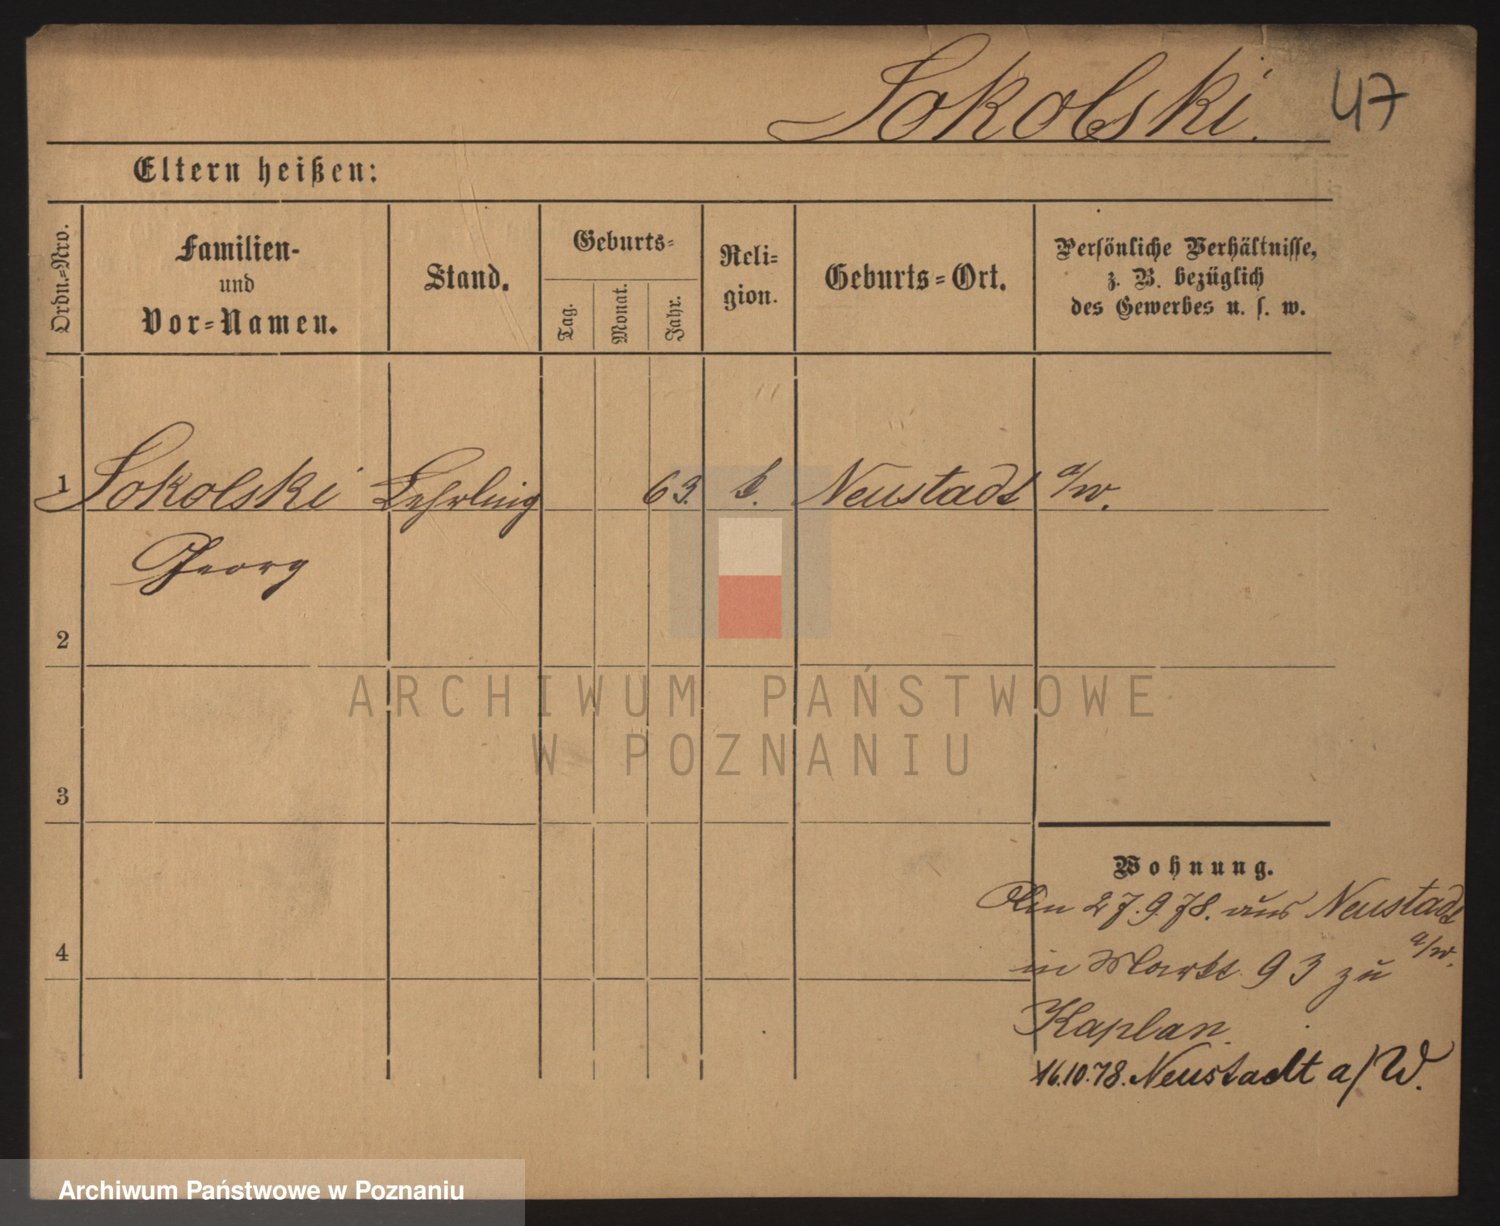 Sokolski. 47
Eltern heißen:
Ordn.=Nro.
Familien-
und
Vor=Namen.
Stand.
Geburts=
Tag.
Monat.
Jahr.
Reli=
gion.
Geburts=Ort.
Persönliche Verhältnisse,
z. B. bezüglich
des Gewerbes u. s. w.
1 Sokolski Lehrling 63. Neustadt a/w.
Georg
2
3
4
ARCHIWUM PAŃSTWOWE
W POZNANIU
Wohnung.
27.9.78. aus Neustadt
a/w.
in Markt 93 zu
Kaplan.
16.10.78. Neustadt a/W.
Archiwum Państwowe w Poznaniu